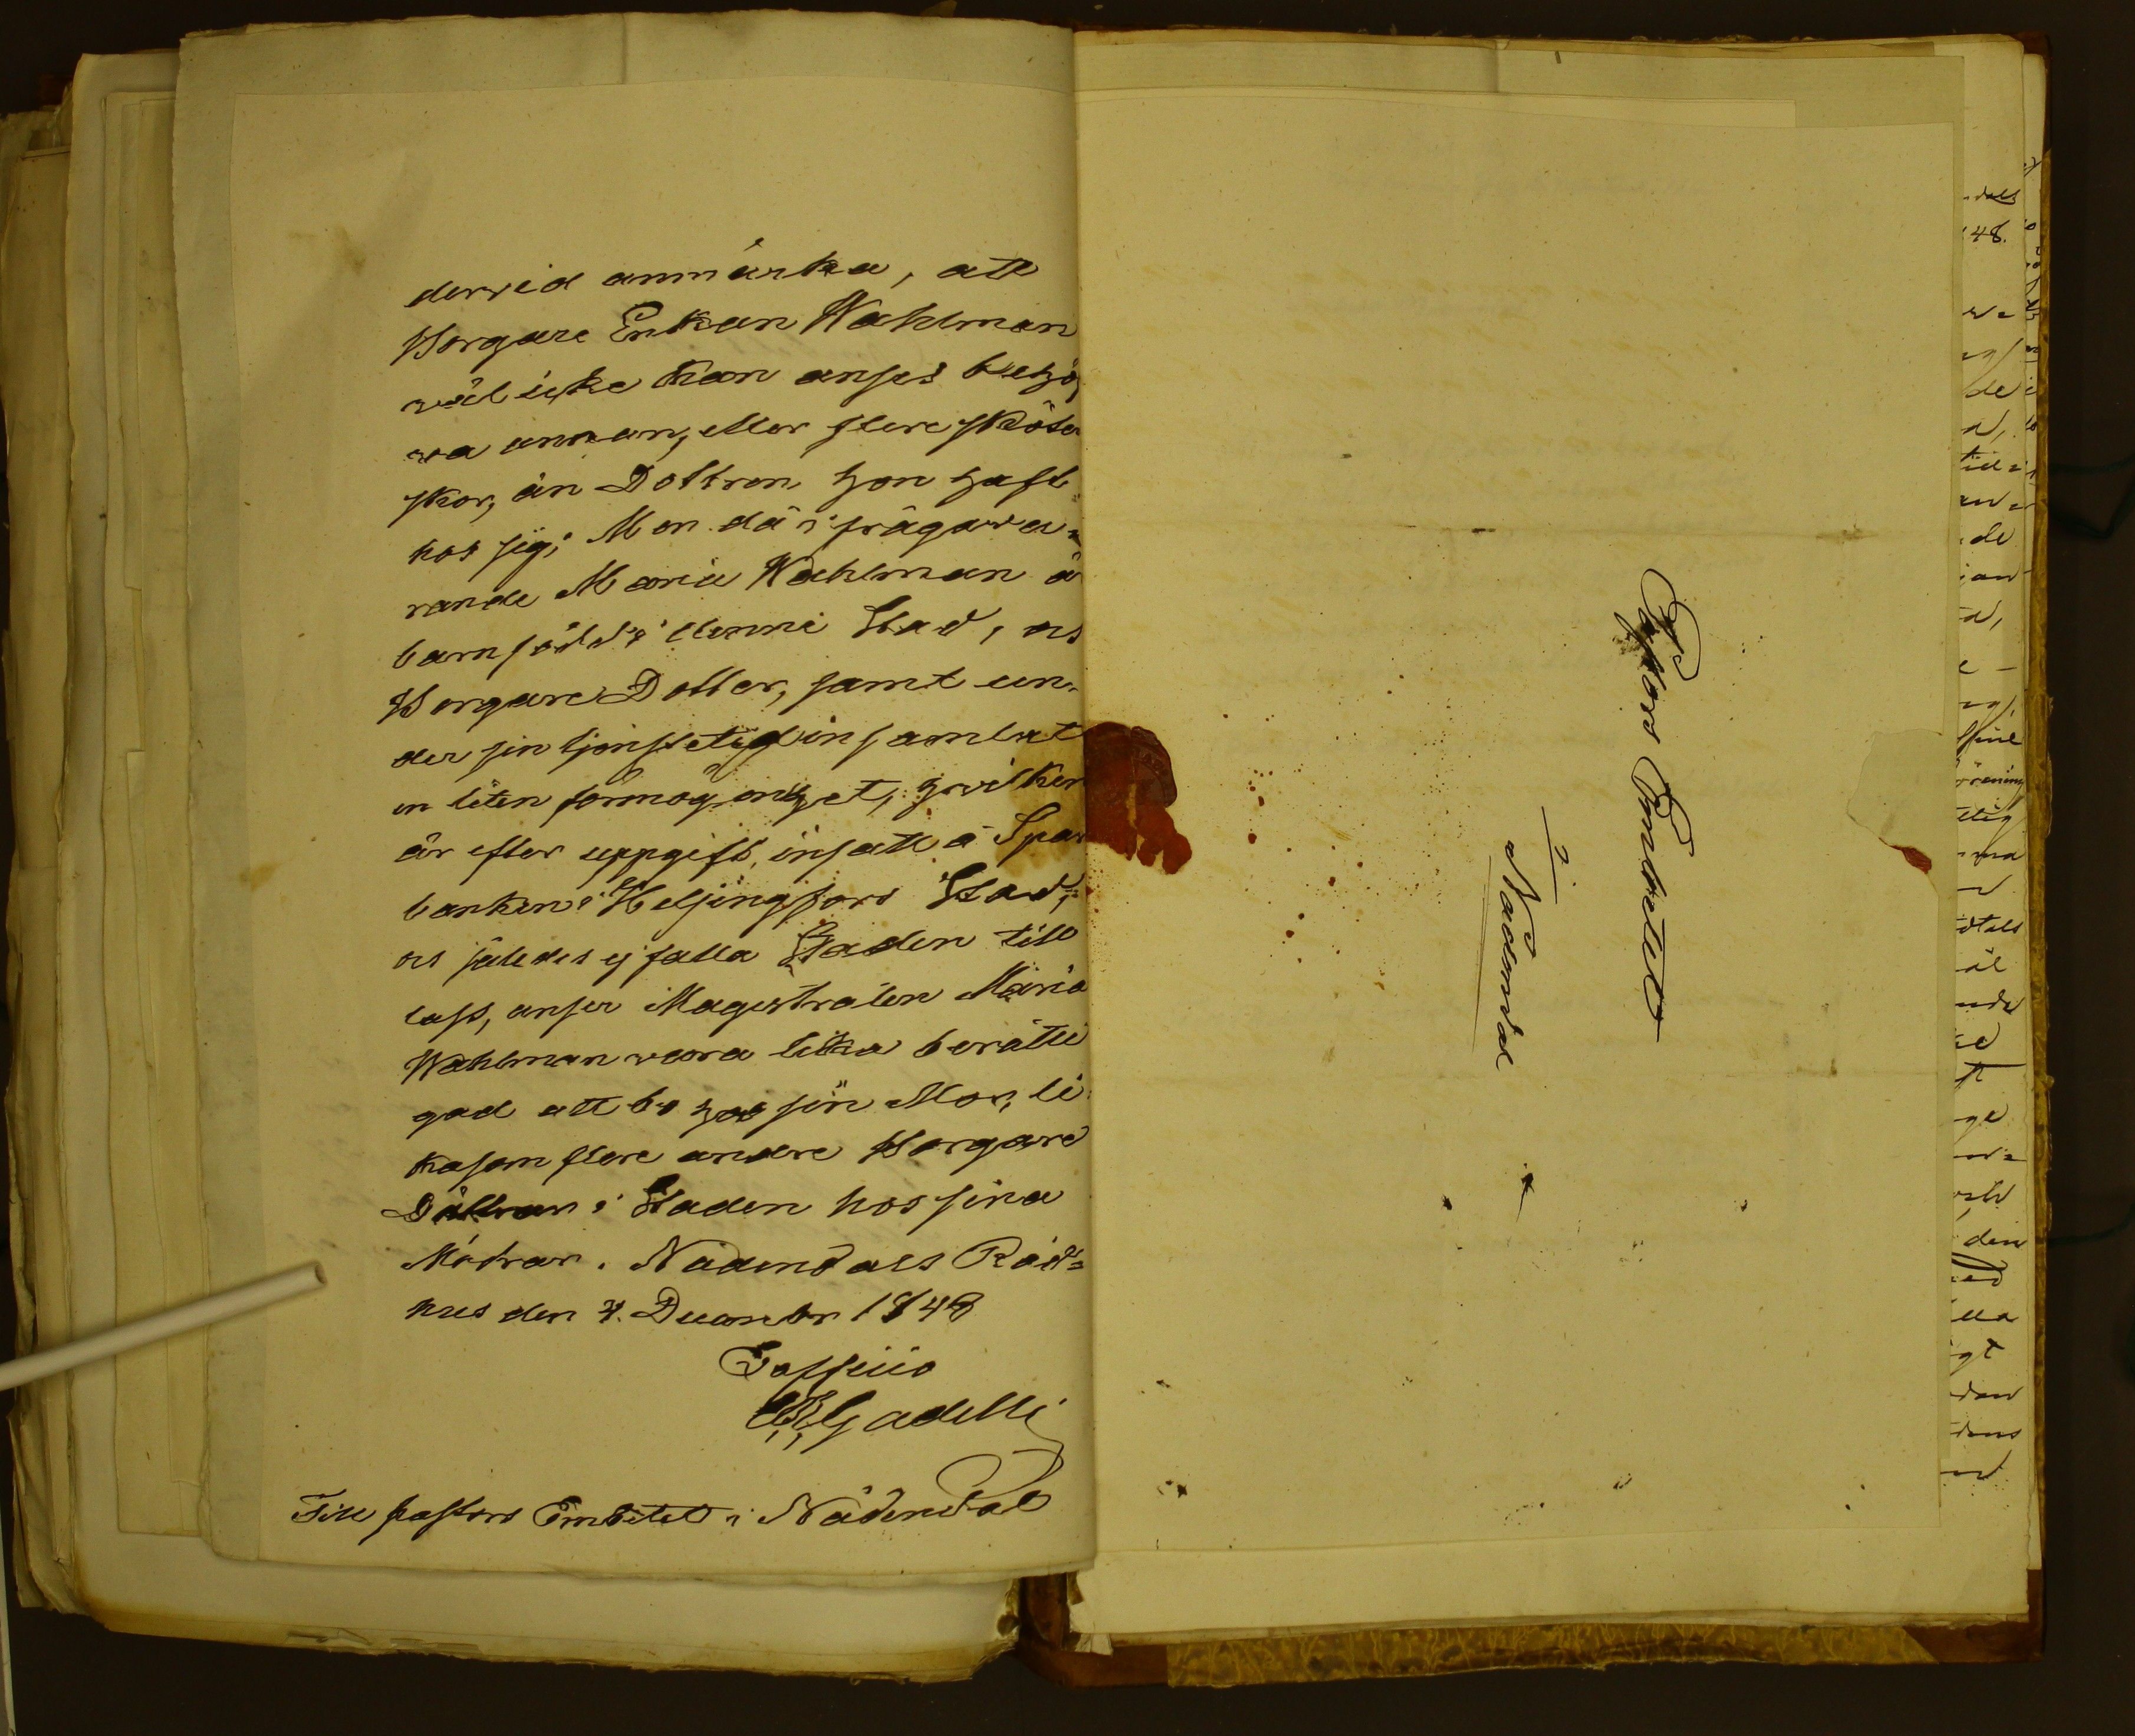 dervid anmärka, att
Borgare Enkan Wahlman
wäl icke kan anses behö
va annan, eller flere sköter
skor, än Dottren hon haft
hos sig; Men då i fråga wa=
rande Maria Wahlman är
barnfödd i denne Stad, en
Borgare Dotter, samt un=
der sin tjenstetid insamlat
en liten förmögenhet, hvilken
är efter uppgift, insatt å Spar
banken i Helsingfors Stad,
och således ej falla Staden till
last, anser Magistraten Maria
Wahlman vara lika berätti
gad att bo hos sin Mor, li
kasom flere andre Borgare
Döttrar i Staden hos sina
Mödrar. Nådendals Råd=
hus den 4. December 1848
Ex officio
Gadelli
Till Pastors Embetet i Nådendal
Pastors Embetet
i
Nådendal
dals
48.
de
tid=
an=
de
d,
ma
dtals
äl
nde
ge
or=
den
lla
gt
dan